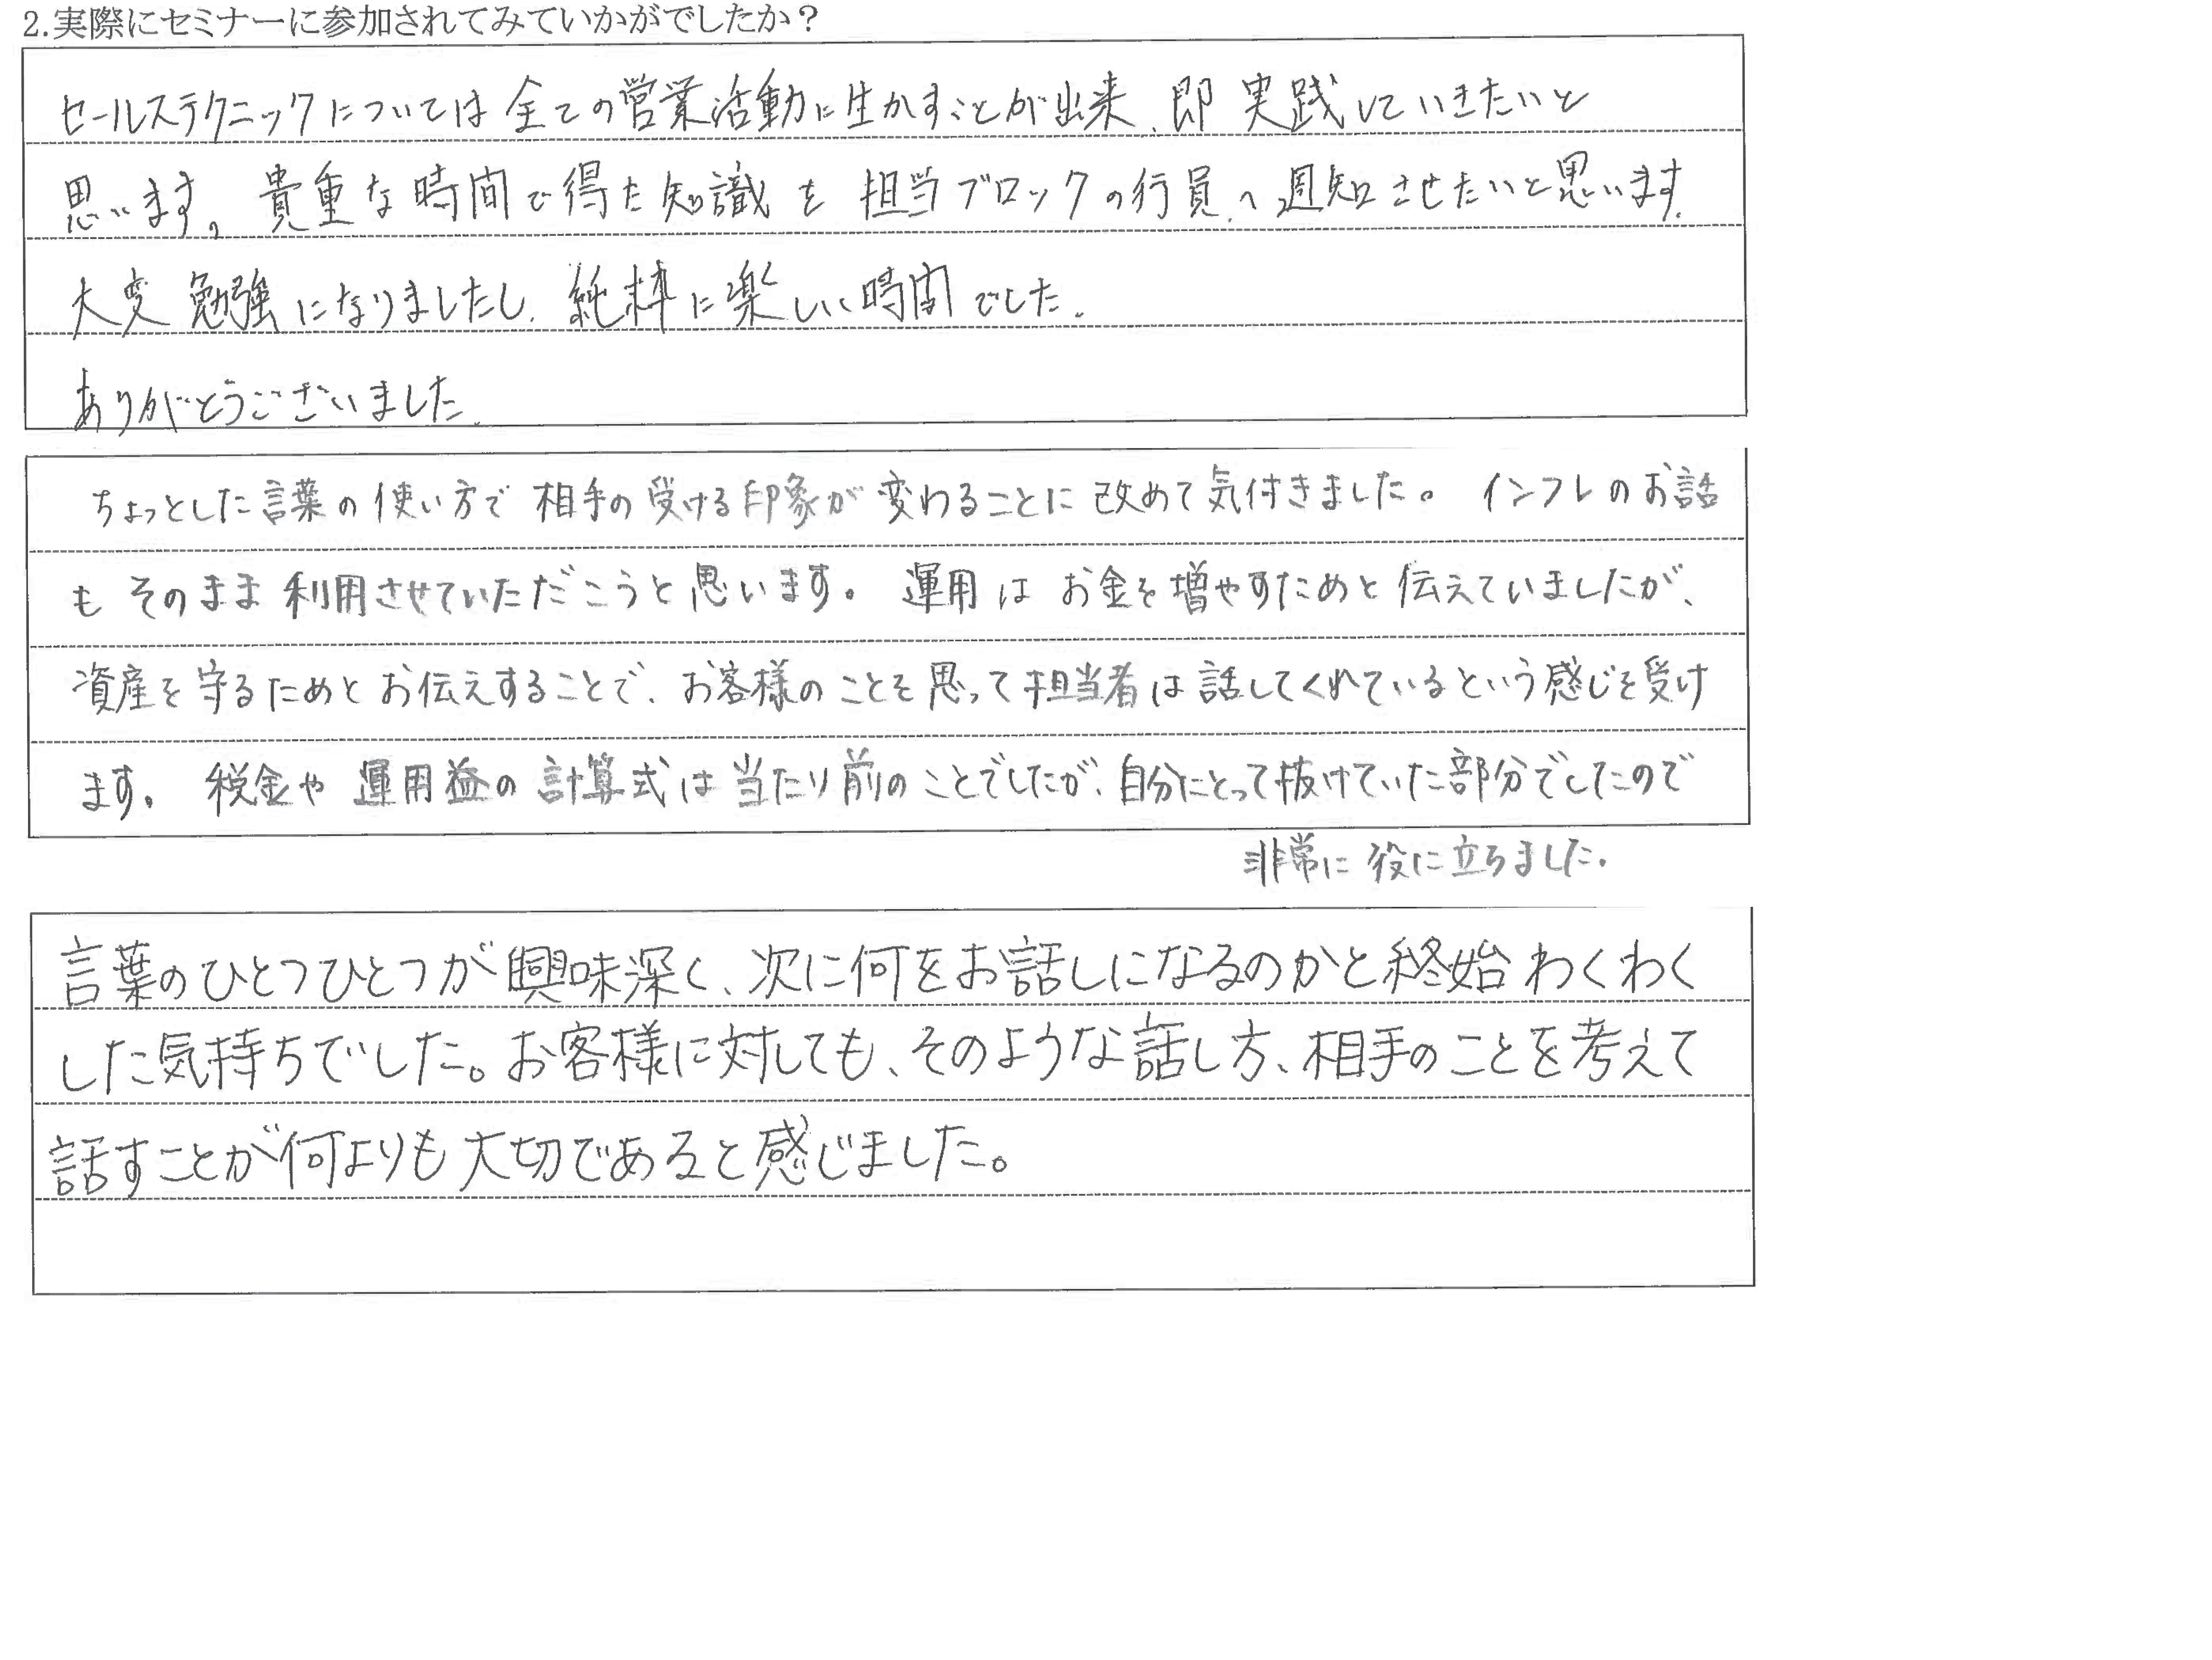 2.実際にセミナーに参加されてみていかがでしたか？
セールステクニックについては全ての営業活動に生かすことが出来、即実践していきたいと
思います。貴重な時間で得た知識を担当ブロックの行員へ周知させたいと思います。
大変勉強になりましたし、純粋に楽しい時間でした。
ありがとうございました。
ちょっとした言葉の使い方で相手の受ける印象が変わることに改めて気付きました。インフレのお話
もそのまま利用させていただこうと思います。運用はお金を増やすためと伝えていましたが、
資産を守るためとお伝えすることで、お客様のことを思って担当者は話してくれているという感じを受け
ます。税金や運用益の計算式は当たり前のことでしたが、自分にとって抜けていた部分でしたので
非常に役に立ちました。
言葉のひとつひとつが興味深く、次に何をお話しになるのかと終始わくわく
した気持ちでした。お客様に対しても、そのような話し方、相手のことを考えて
話すことが何よりも大切であると感じました。